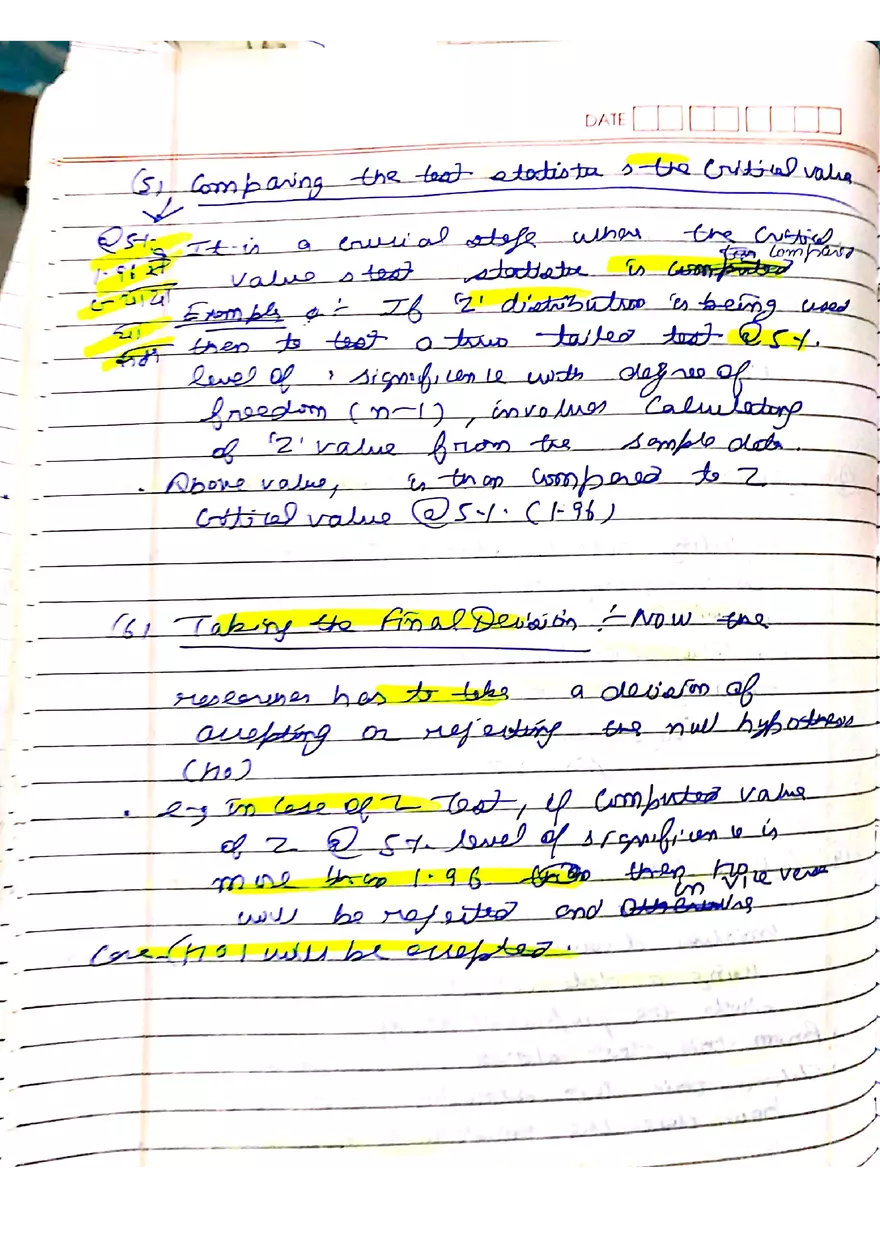 DATE
(5) Comparing the test statistic & the Critical value
@ 5%
It is a crucial stage where the Critical
1.96 से
value & test statistic is then compared
Example :- If 'Z' distribution is being used
या
then to test a two tailed test @ 5%.
level of significence with degree of
freedom (n-1), involves Calculating
of 'Z' value from the sample data.
. Above value, is then compared to Z
Critical value @ 5%. (1.96)
(6) Taking the Final Decision :- Now the
researcher has to take a decision of
accepting or rejecting the null hypothesis
(H0)
. e.g in case of Z Test, if computed value
of Z @ 5% level of significence is
more than 1.96 then Ho
will be rejected and in vice versa
case (H0) will be accepted.